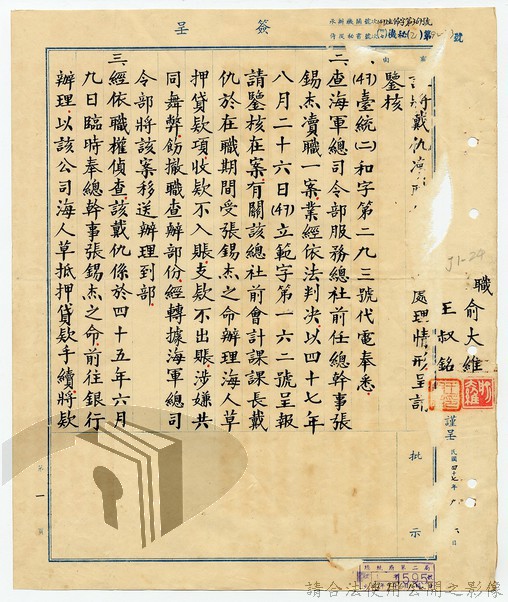 簽呈
號
職俞大維
王叔銘
謹呈
民國四十七年
日
批示
J1-24
處理情形呈請
鑒核
一、(47)臺統(二)和字第二九三號代電奉悉
二、查海軍總司令部服務總社前任總幹事張
錫杰瀆職一案業經依法判決以四十七年
八月二十六日(47)立範字第一六二號呈報
請鑒核在案有關該總社前會計課課長戴
仇於在職期間受張錫杰之命辦理海人草
押貸款項收款不入賬支款不出賬涉嫌共
同舞弊飭撤職查辦部份經轉據海軍總司
令部將該案移送辦理到部
三、經依職權偵查該戴仇係於四十五年六月
九日臨時奉總幹事張錫杰之命前往銀行
辦理以該公司海人草抵押貸款手續將款
第一頁
總統府第二局
595
請合法使用公開之影像